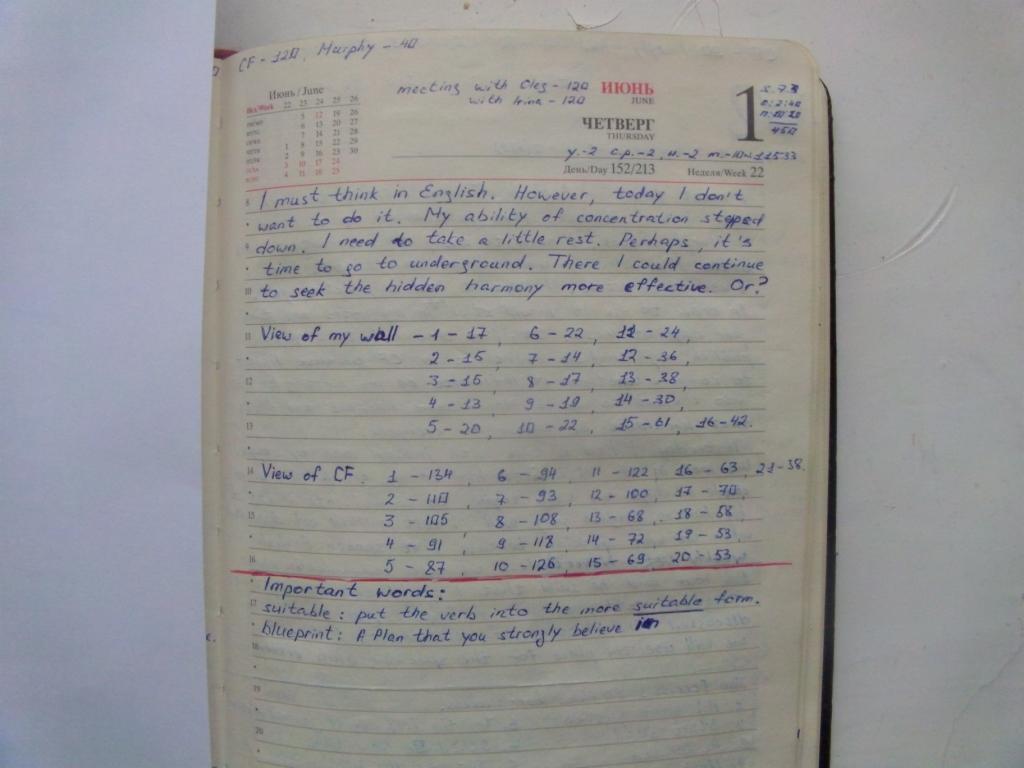 CF - 120, Murphy - 40
Июнь / June
Нед/Week 22 23 24 25 26
5 12 19 26
6 13 20 27
7 14 21 28
1 8 15 22 29
2 9 16 23 30
3 10 17 24
4 11 18 25
meeting with Oleg - 120
with Irina - 120
ИЮНЬ
JUNE
1
ЧЕТВЕРГ
THURSDAY
450
День/Day 152/213
Неделя/Week 22
8 I must think in English. However, today I don't
want to do it. My ability of concentration stopped
9 down. I need to take a little rest. Perhaps, it's
time to go to underground. There I could continue
10 to seek the hidden harmony more effective. Or?
11 View of my wall - 1 - 17, 6 - 22, 11 - 24,
2 - 15, 7 - 14, 12 - 36,
12 3 - 15, 8 - 17, 13 - 38,
4 - 13, 9 - 19, 14 - 30,
13 5 - 20, 10 - 22, 15 - 61, 16 - 42.
14 View of CF. 1 - 134, 6 - 94, 11 - 122, 16 - 63, 21 - 38.
2 - 110, 7 - 93, 12 - 100, 17 - 70,
15 3 - 105, 8 - 108, 13 - 68, 18 - 58,
4 - 91, 9 - 118, 14 - 72, 19 - 53,
16 5 - 87, 10 - 126, 15 - 69, 20 - 53,
Important words:
17 suitable: put the verb into the more suitable form.
blueprint: A Plan that you strongly believe in
18
19
20